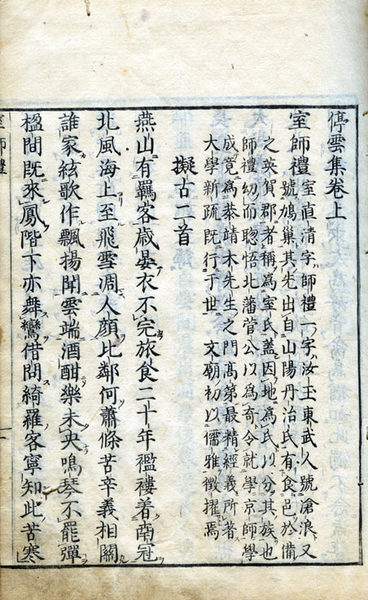 停雲集卷上
室師禮
室直清字師禮一字汝玉東武人號滄浪又
號鳩巢其先出自山陽丹治氏有食邑於備
之英賀郡者稱為室氏蓋因地為氏以分其族也
師禮幼而聰悟北藩菅公以為奇令就學京師學
成竟為恭靖木先生之門高第最精經義所著
大學新疏既行于世 文廟初以儒雅徵擢焉
擬古二首
燕山有羈客歲晏衣不完旅食二十年襤褸着南冠
北風海上至飛雪凋人顏比鄰何蕭條苦辛義相關
誰家絃歌作飄揚聞雲端酒酣樂未央鳴琴不罷彈
楹間既來鳳階下亦舞鸞借問綺羅客寧知此苦寒
室師禮